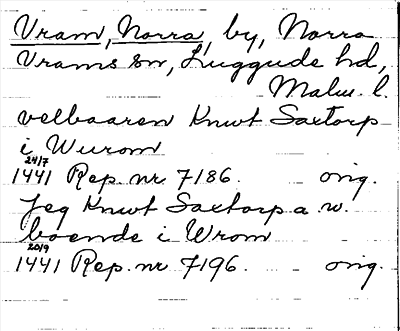 Vram, Norra, by, Norra
Vrams sn, Luggude hd,
Malm. l.
velbaaren Knwt Saxtorp
i Wurom
24/7
1441 Rep. nr 7186. orig.
Jeg Knwt Saxtorp a. w.
boende i Wrom
20/9
1441 Rep. nr 7196. orig.